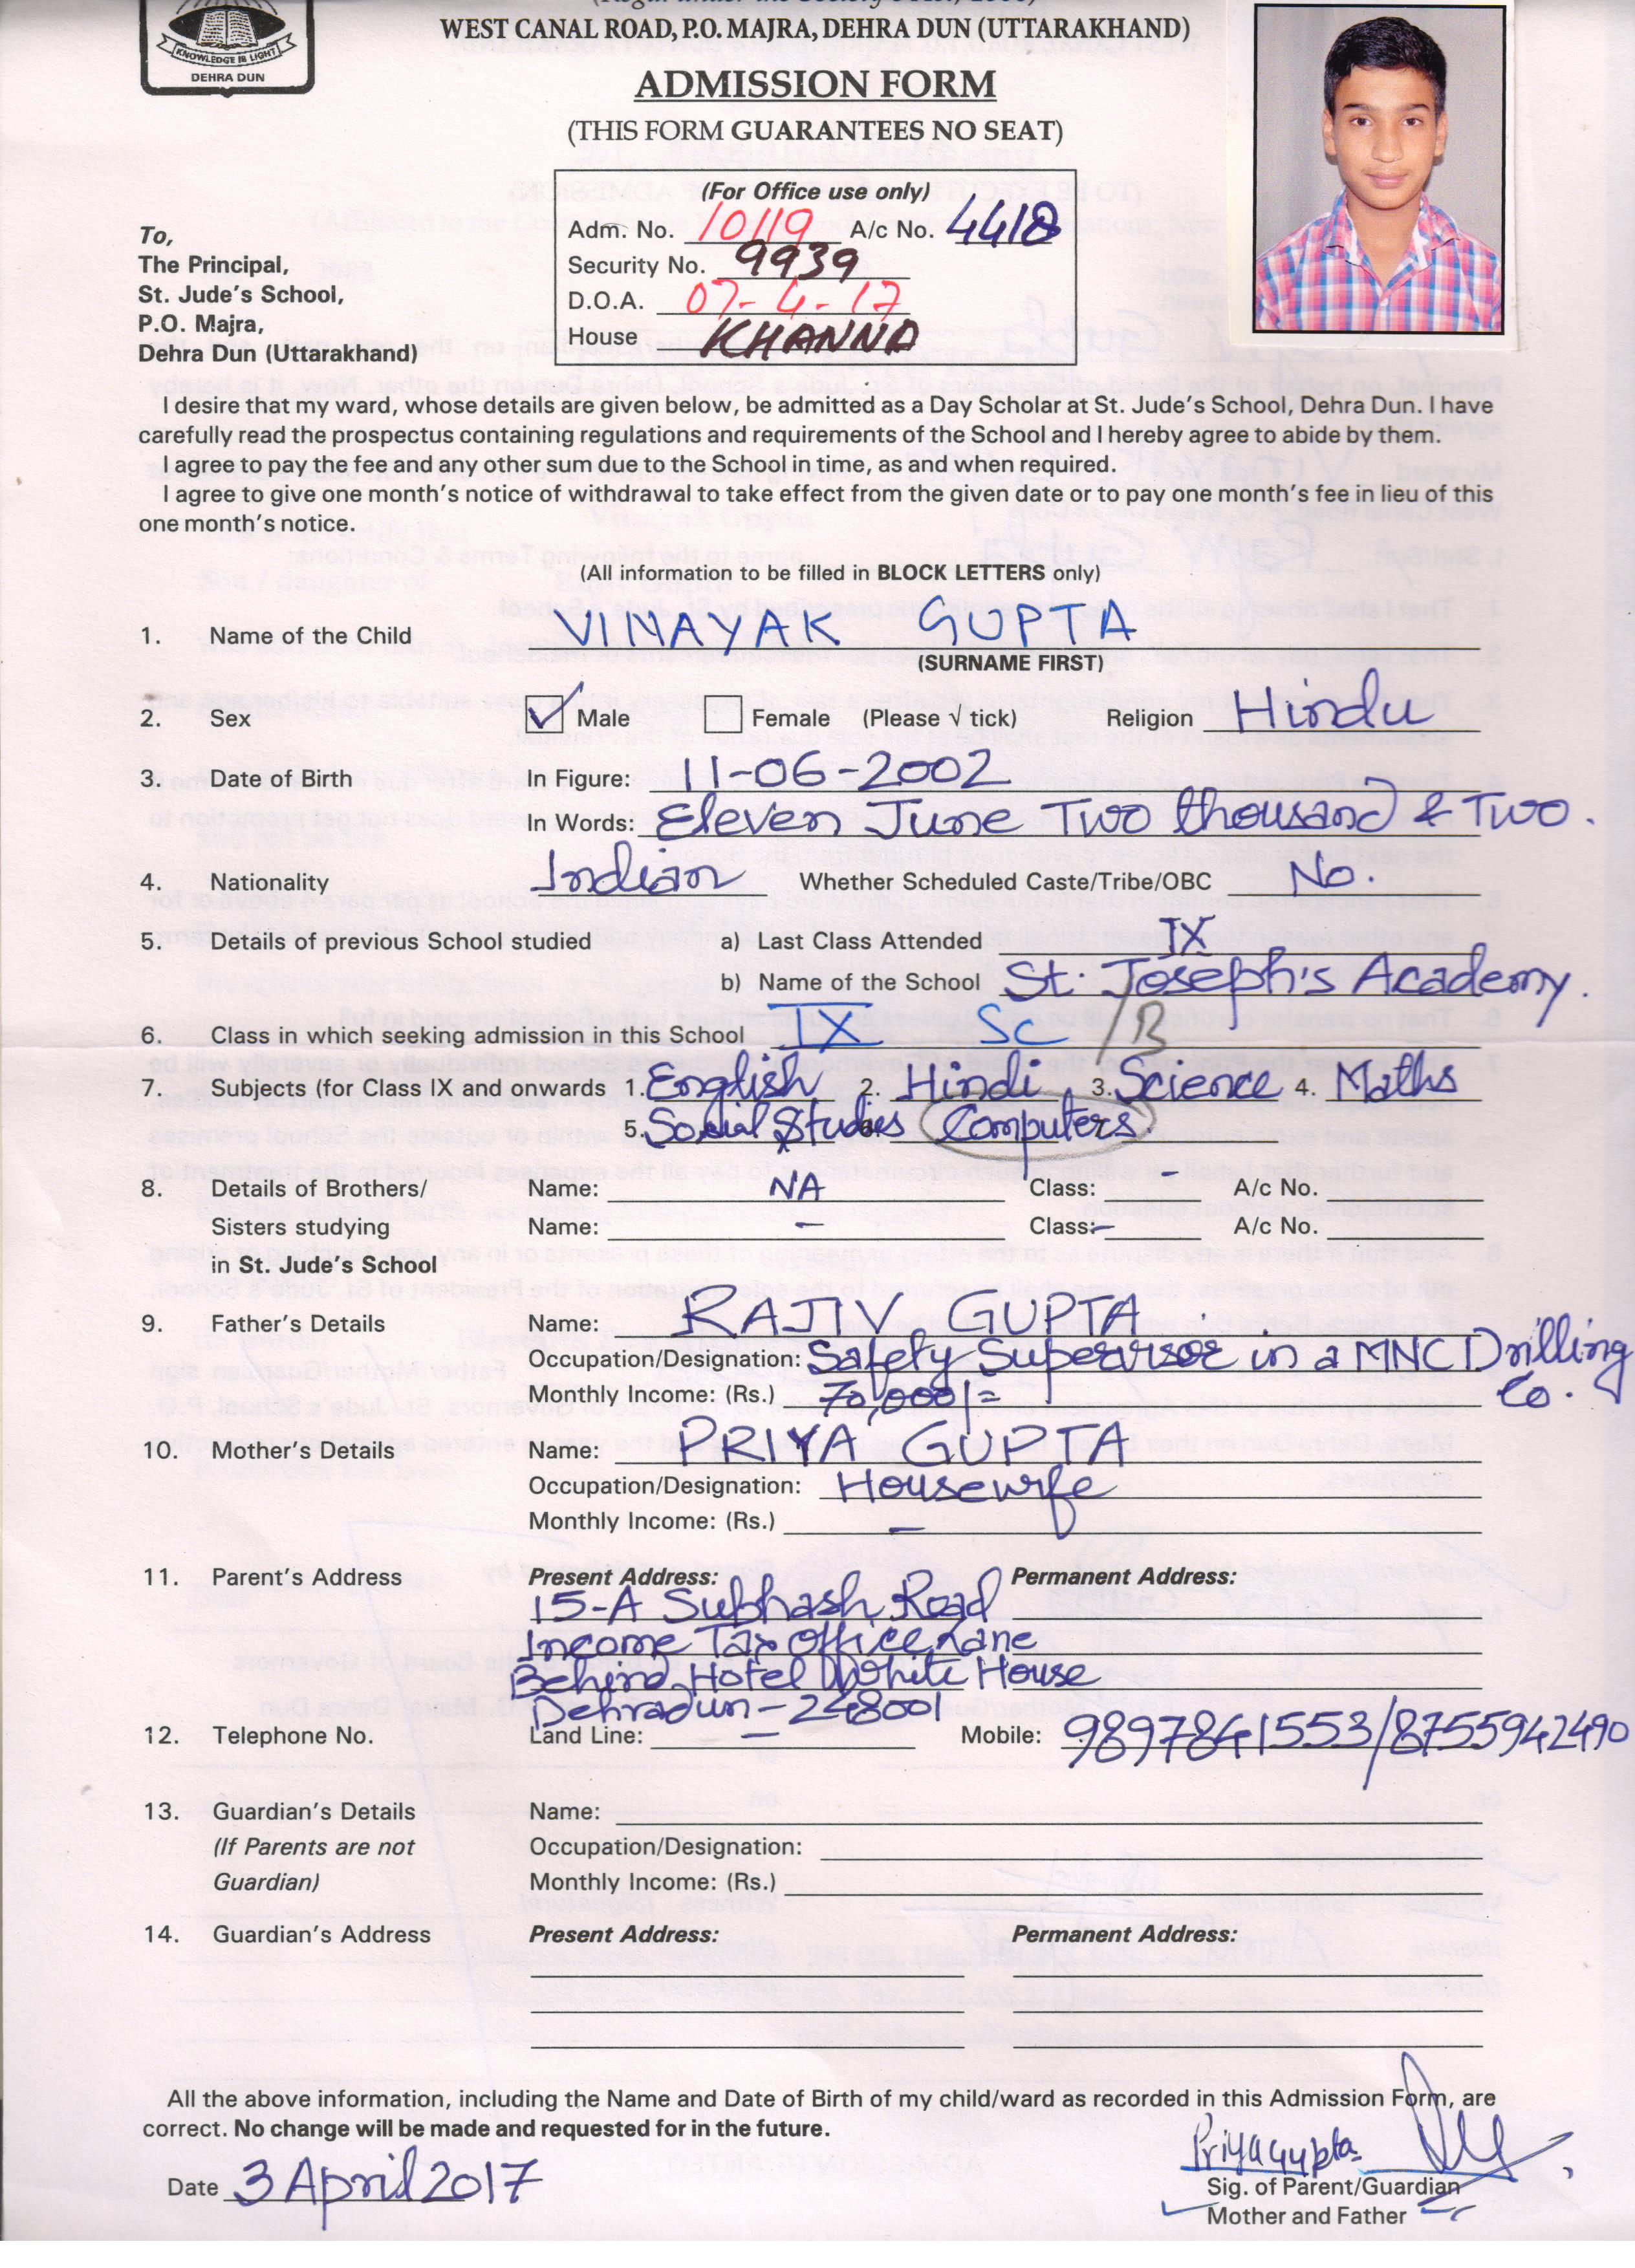 KNOWLEDGE IS LIGHT
DEHRA DUN
WEST CANAL ROAD, P.O. MAJRA, DEHRA DUN (UTTARAKHAND)
ADMISSION FORM
(THIS FORM GUARANTEES NO SEAT)
(For Office use only)
Adm. No. 10119 A/c No. 4418
Security No. 9939
D.O.A. 07-4-17
House KHANNA
To,
The Principal,
St. Jude's School,
P.O. Majra,
Dehra Dun (Uttarakhand)
I desire that my ward, whose details are given below, be admitted as a Day Scholar at St. Jude's School, Dehra Dun. I have
carefully read the prospectus containing regulations and requirements of the School and I hereby agree to abide by them.
I agree to pay the fee and any other sum due to the School in time, as and when required.
I agree to give one month's notice of withdrawal to take effect from the given date or to pay one month's fee in lieu of this
one month's notice.
(All information to be filled in BLOCK LETTERS only)
1. Name of the Child VINAYAK GUPTA
(SURNAME FIRST)
2. Sex Male Female (Please √ tick) Religion Hindu
3. Date of Birth In Figure: 11-06-2002
In Words: Eleven June Two thousand & Two.
4. Nationality Indian Whether Scheduled Caste/Tribe/OBC No.
5. Details of previous School studied a) Last Class Attended IX
b) Name of the School St. Joseph's Academy.
6. Class in which seeking admission in this School IX Sc /B
7. Subjects (for Class IX and onwards 1. English 2. Hindi 3. Science 4. Maths
5. Social Studies 6. Computers.
8. Details of Brothers/ Name: NA Class: - A/c No.
Sisters studying Name: - Class: - A/c No.
in St. Jude's School
9. Father's Details Name: RAJIV GUPTA
Occupation/Designation: Safety Supervisor in a MNC Drilling
Co.
Monthly Income: (Rs.) 70,000/=
10. Mother's Details Name: PRIYA GUPTA
Occupation/Designation: Housewife
Monthly Income: (Rs.) -
11. Parent's Address Present Address: Permanent Address:
15-A Subhash Road
Income Tax Office Lane
Behind Hotel White House
Dehradun - 248001
12. Telephone No. Land Line: - Mobile: 9897841553/8755942490
13. Guardian's Details Name:
(If Parents are not Occupation/Designation:
Guardian) Monthly Income: (Rs.)
14. Guardian's Address Present Address: Permanent Address:
All the above information, including the Name and Date of Birth of my child/ward as recorded in this Admission Form, are
correct. No change will be made and requested for in the future.
Priya Gupta
Date 3 April 2017
Sig. of Parent/Guardian
Mother and Father